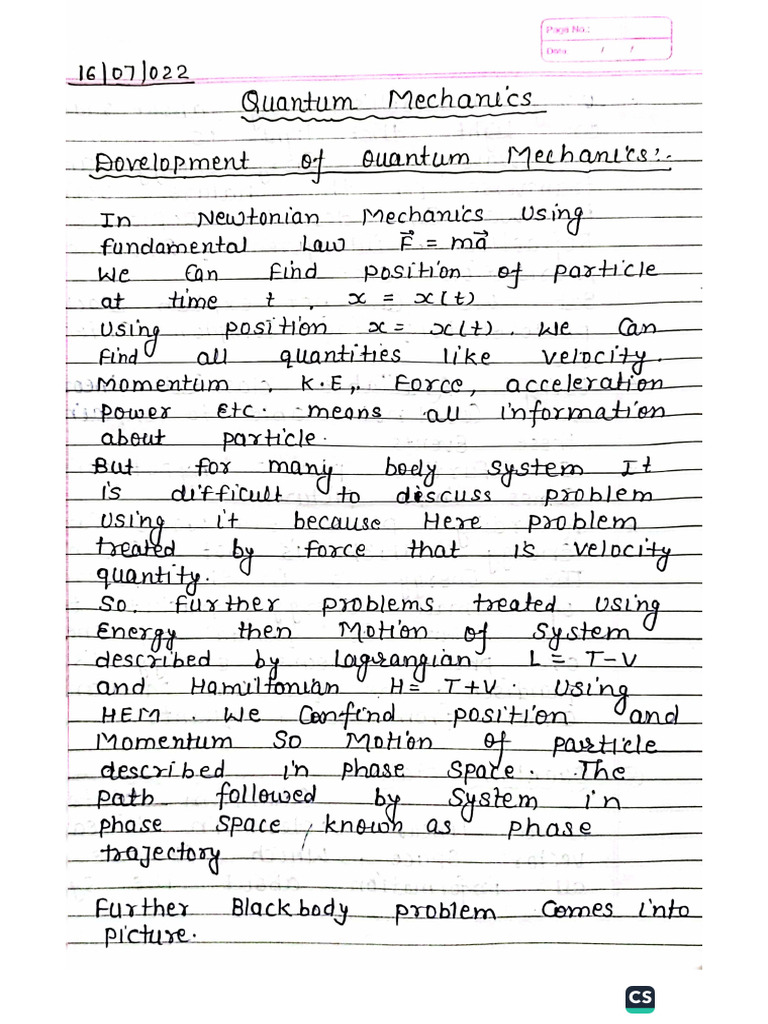 Page No.:
Date / /
16/07/022
Quantum Mechanics
Development of Quantum Mechanics:-
In Newtonian Mechanics Using
fundamental Law F⃗ = ma⃗
We Can Find position of particle
at time t , x = x(t)
Using position x = x(t). We Can
Find all quantities like velocity.
Momentum , K.E,. Force, acceleration
power Etc. means all information
about particle.
But for many body system It
is difficult to discuss problem
Using it because Here problem
treated by force that is velocity
quantity.
So, further problems treated Using
Energy then Motion of System
described by Lagrangian L = T-V
and Hamiltonian H= T+V. Using
HEM. We Canfind position and
Momentum So Motion of particle
described in phase Space. The
path followed by System in
phase Space, known as phase
trajectory
Further Blackbody problem Comes into
picture.
CS